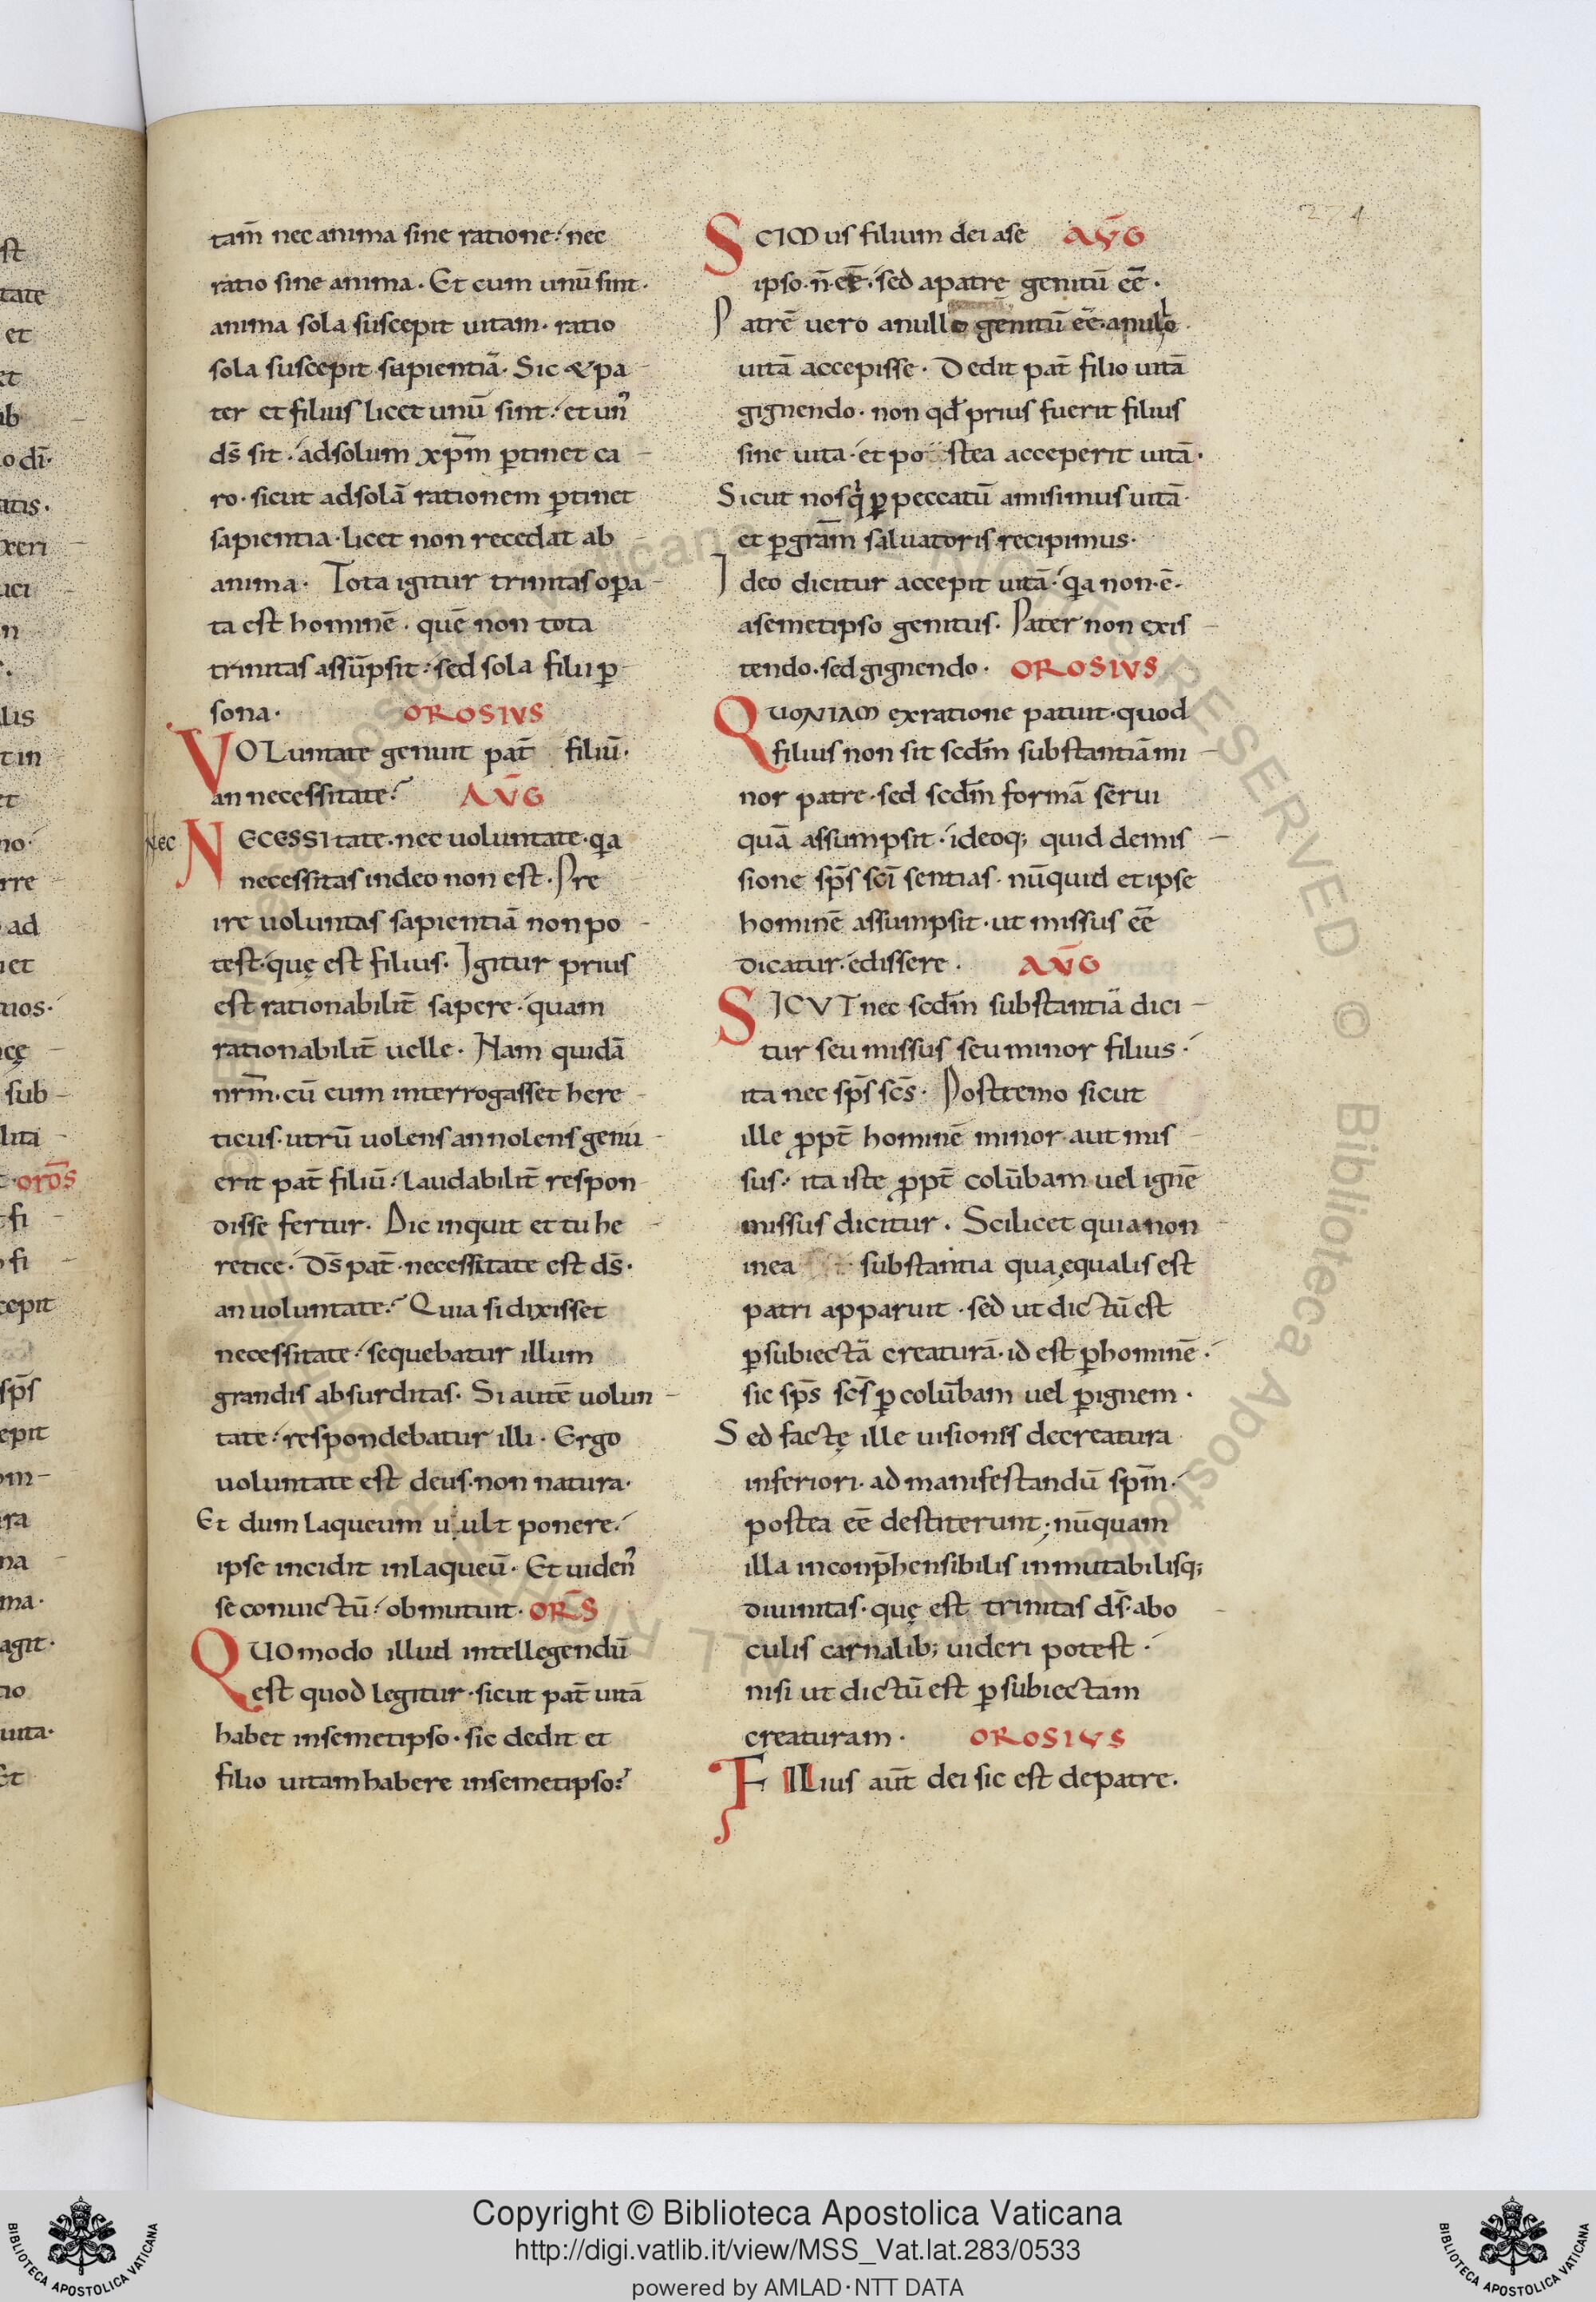 tam̅ nec anima sine ratione. nec
ratio sine anima. Et cum unū sint.
anima sola suscepit uitam. ratio
sola suscepit sapientiā. Sic & pa
ter et filius licet unū sint. et unꝰ
ds̄ sit. ad solum xp̄m ꝑtinet ca
ro. sicut ad solā rationem ꝑtinet
sapientia. licet non recedat ab
anima. Tota igitur trinitas oꝑa
ta est hominē. quē non tota
trinitas assūpsit. sed sola filii ꝑ
sona. OROSIVS
VOLuntate genuit pat̄ filiū.
an necessitate? AV̄G
Nec NECESSItate. nec uoluntate. qa
necessitas in deo non est. Pre
ire uoluntas sapientiā non po
test. quę est filius. Igitur prius
est rationabilit̄ sapere. quam
rationabilit̄ uelle. Nam quidā
nrm̄. cū eum interrogasset here
ticus. utrū uolens an nolens genu
erit pat̄ filiū. laudabilit̄ respon
disse fertur. Dic inquit et tu he
retice. Ds̄ pat̄. necessitate est ds̄.
an uoluntate? Quia si dixisset
necessitate. sequebatur illum
grandis absurditas. Si autē uolun
tate. respondebatur illi. Ergo
uoluntate est deus. non natura.
Et dum laqueum u ult ponere.
ipse incidit in laqueū. Et uidenꝰ
se conuictū. obmutuit. OR̄S
QUOmodo illud intellegendū
est quod legitur. sicut pat̄ uitā
habet in semetipso. sic dedit et
filio uitam habere in semetipso?
SCIMus filium dei a se AV̄G
ipso. n̄ eē. sed a patre genitū eē.
Patrē uero a nullo genitū eē. a nullo
uitā accepisse. Dedit pat̄ filio uitā
gignendo. non qd̄ prius fuerit filius
sine uita. et po stea acceperit uitā.
Sicut nos q̇ ꝑ peccatū amisimus uitā.
et ꝑ gram̄ saluatoris recipimus.
Ideo dicitur accepit uitā. qa non. ē.
a semetipso genitus. Pater non exis
tendo. sed gignendo. OROSIVS
QUONIAM ex ratione patuit. quod
filius non sit scdm̄ substantiā mi
nor patre. sed scdm̄ formā serui
quā assumpsit. ideoq; quid de mis
sione sp̄s sc̄i sentias. nūquid et ipse
hominē assumpsit. ut missus eē
dicatur. edissere. AV̄G
SICVT nec scdm̄ substantiā dici
tur seu missus seu minor filius.
ita nec sp̄s sc̄s. Postremo sicut
ille ꝓpt̄ hominē minor aut mis
sus. ita iste ꝓpt̄ colūbam uel ignē
missus dicitur. Scilicet quia non
in ea substantia qua ęqualis est
patri apparuit. sed ut dictū est
ꝑ subiectā creaturā. id est ꝑ hominē.
sic sp̄s sc̄s ꝑ colūbam uel ꝑ ignem.
Sed factę ille uisionis de creatura
inferiori. ad manifestandū spm̄.
postea eē destiterunt; nūquam
illa inconp̄hensibilis inmutabilisq;
diuinitas. quę est trinitas ds̄. ab o
culis carnalib; uideri potest.
nisi ut dictū est ꝑ subiectam
creaturam. OROSIVS
FILius aūt dei sic est de patre.
274
st
tate
et
ib
o di.
atis.
xeri
uci
lis
t in
et
no.
rre
ad
sub
lita
orōs
fi
cepit
sp̄s
epit
ma.
agit.
uita.
Copyright © Biblioteca Apostolica Vaticana
http://digi.vatlib.it/view/MSS_Vat.lat.283/0533
powered by AMLAD·NTT DATA
BIBLIOTECA APOSTOLICA VATICANA
BIBLIOTECA APOSTOLICA VATICANA